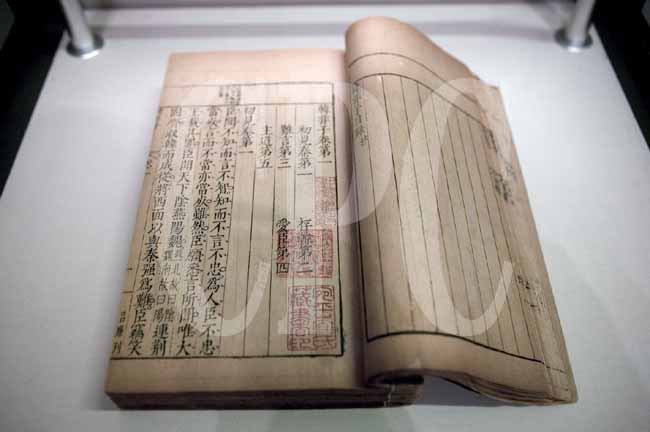 韓非子卷第一
初見秦第一 存韓第二
難言第三 愛臣第四
主道第五
初見秦第一
臣聞不知而言不智知而不言不忠爲人臣不忠
當死言而不當亦當死雖然臣願悉言所聞唯大
王裁其罪臣聞天下陰燕陽魏燕北故曰陰魏南故曰陽連荆
固齊收韓而成從將西面以與秦强爲難臣竊笑
藏書印